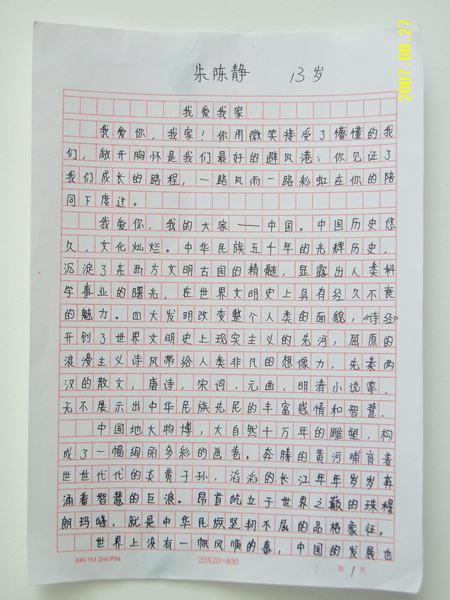 朱陈静 13岁
2007.08.27
我爱我家
我爱你，我家！你用微笑接受了懵懂的我
们，敞开胸怀是我们最好的避风港；你见证了
我们成长的路程，一路风雨一路彩虹在你的陪
同下度过。
我爱你，我的大家——中国。中国历史悠
久，文化灿烂。中华民族五十年的光辉历史，
沉淀了东西方文明古国的精髓，显露出人类科
学事业的曙光，在世界文明史上具有经久不衰
的魅力。四大发明改变整个人类的面貌，《诗经》
开创了世界文明史上现实主义的先河，屈原的
浪漫主义诗风带给人类非凡的想像力，先秦两
汉的散文，唐诗，宋词，元曲，明清小说等，
无不展示出中华民族先民的丰富感情和智慧。
中国地大物博，大自然千万年的雕塑，构
成了一幅绚丽多彩的画卷。奔腾的黄河哺育着
世世代代的炎黄子孙，滔滔的长江年年岁岁奔
涌着智慧的巨浪。昂首屹立于世界之巅的珠穆
朗玛峰，就是中华民族坚韧不屈的品格象征。
世界上没有一帆风顺的事，中国的发展也
XIN YU ZHI PIN
20X20=400
第1页